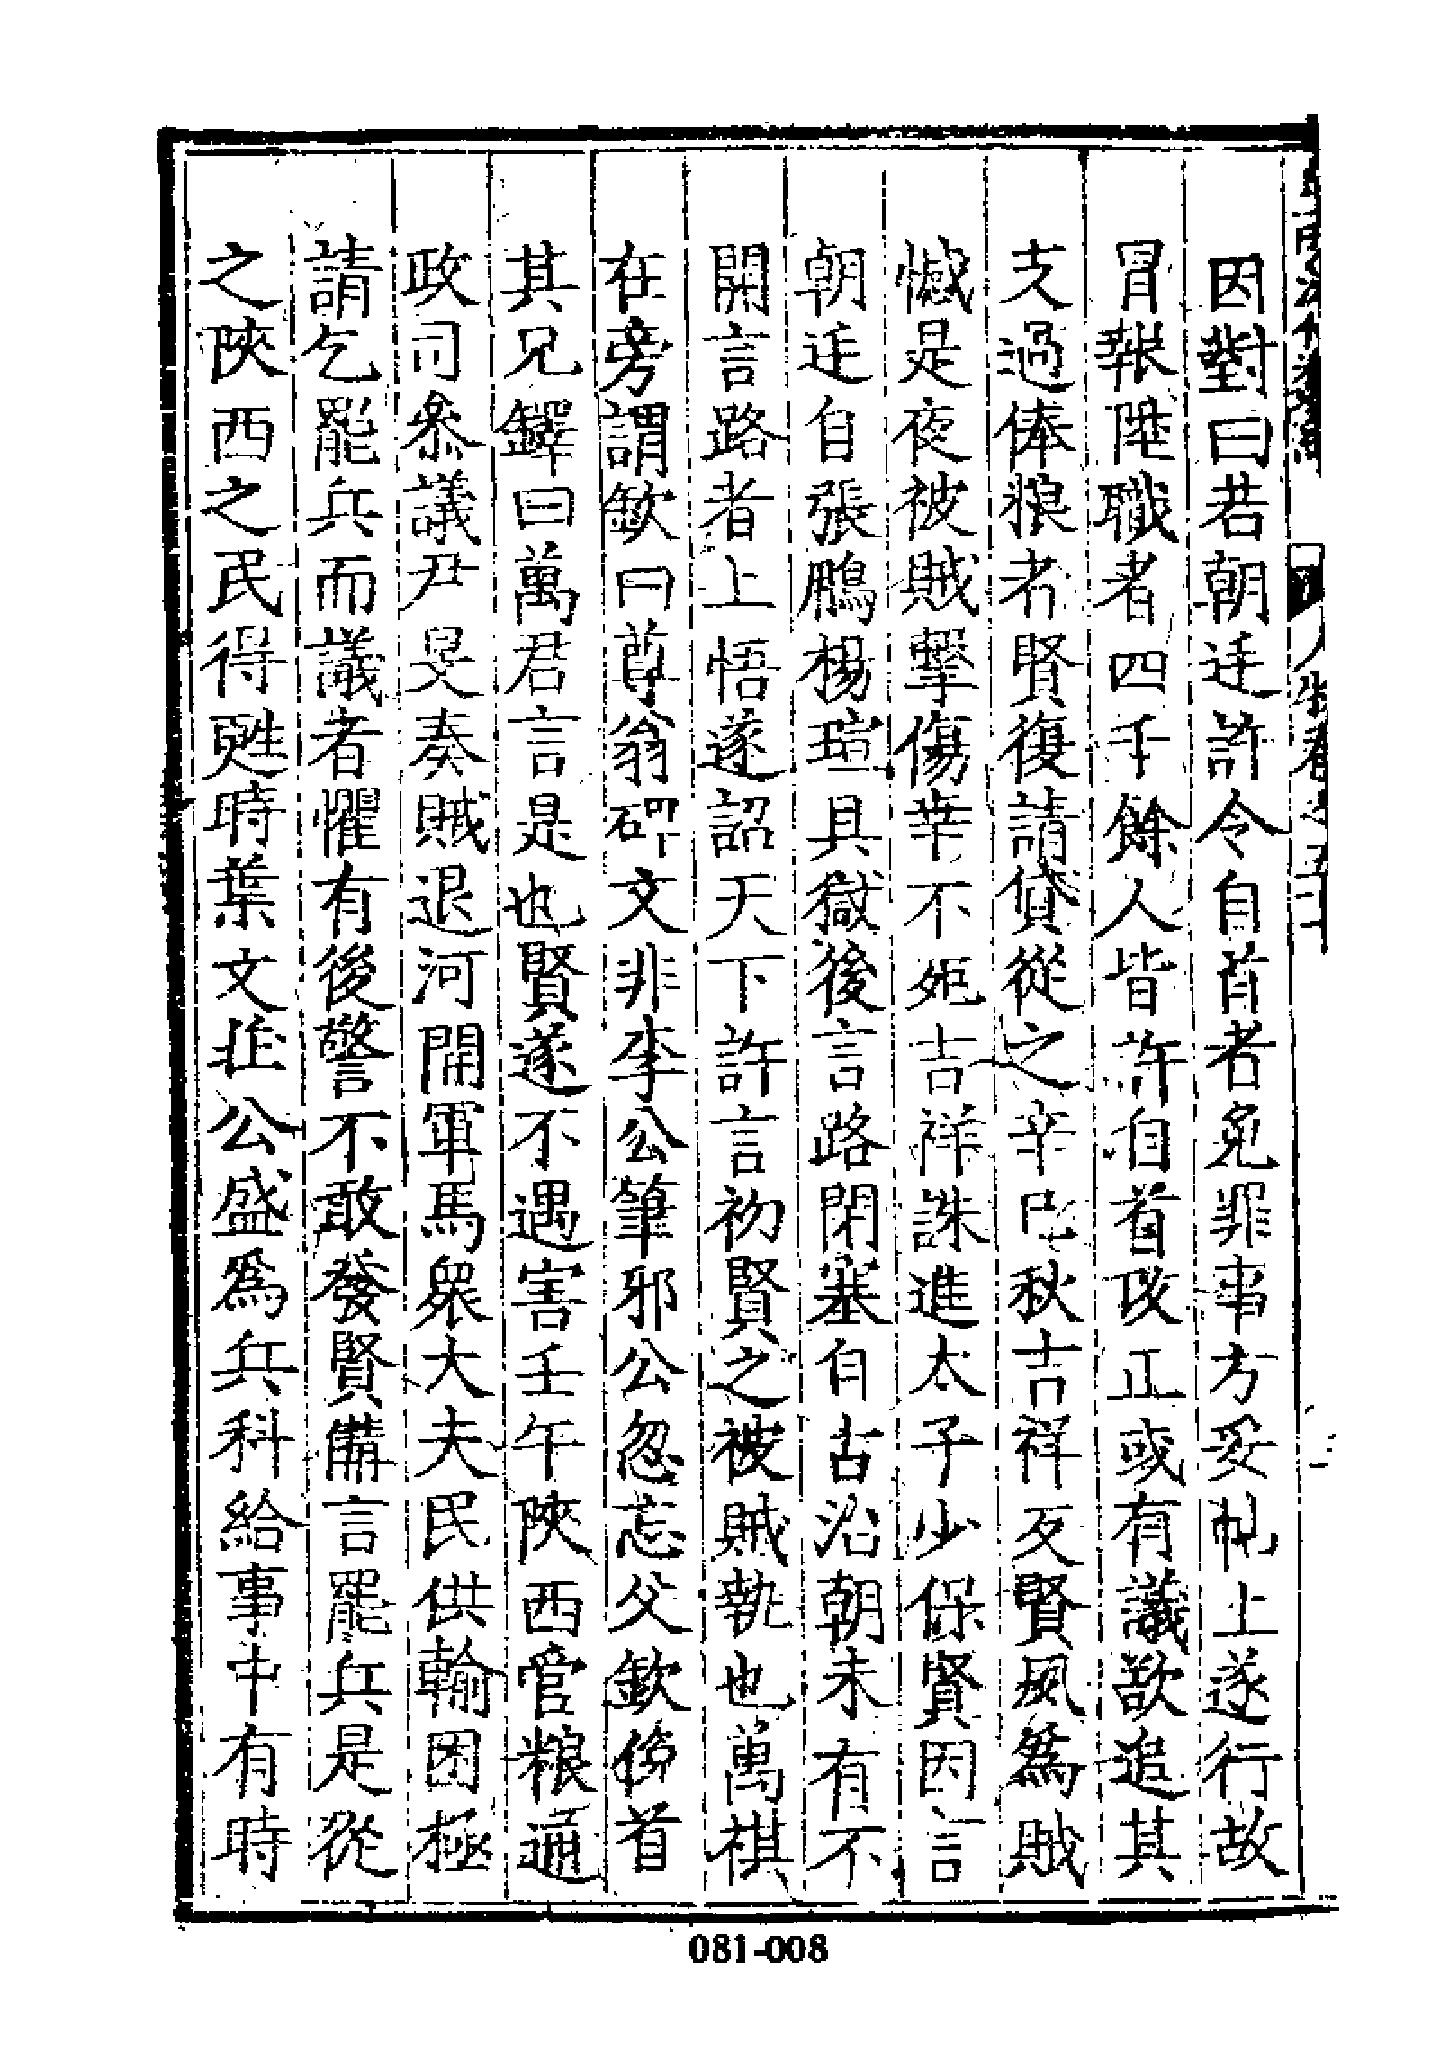 因對曰若朝廷許令自首者免罪事方妥帖上遂行故
冒報陞職者四千餘人皆許自首改正或有議欲追其
支過俸粮者賢復請貸從之辛巳秋吉祥反賢夙為賊
憾是夜被賊擊傷幸不死吉祥誅進太子少保賢因言
朝廷自張鵬楊瑄具獄後言路閉塞自古治朝未有不
開言路者上悟遂詔天下許言初賢之被賊執也萬祺
在旁謂欽曰尊翁碑文非李公筆邪公忽忘父欽俛首
其兄鐸曰萬君言是也賢遂不遇害壬午陝西管粮通
政司叅議尹旻奏賊退河開軍馬衆大夫民供輸困極
請乞罷兵而議者懼有後警不敢發賢備言罷兵是從
之陝西之民得甦時葉文莊公盛爲兵科給事中有時
081-008